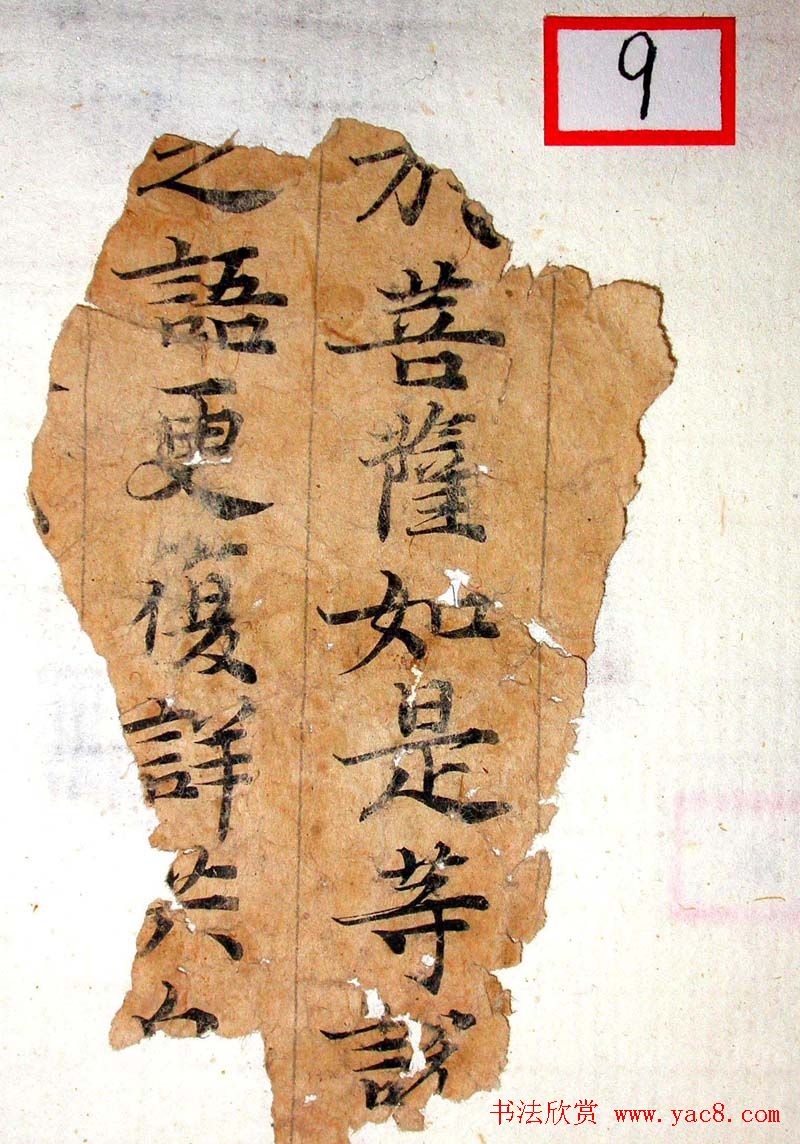 9
於菩薩如是等說
之語更復詳共
书法欣赏 www.yac8.com